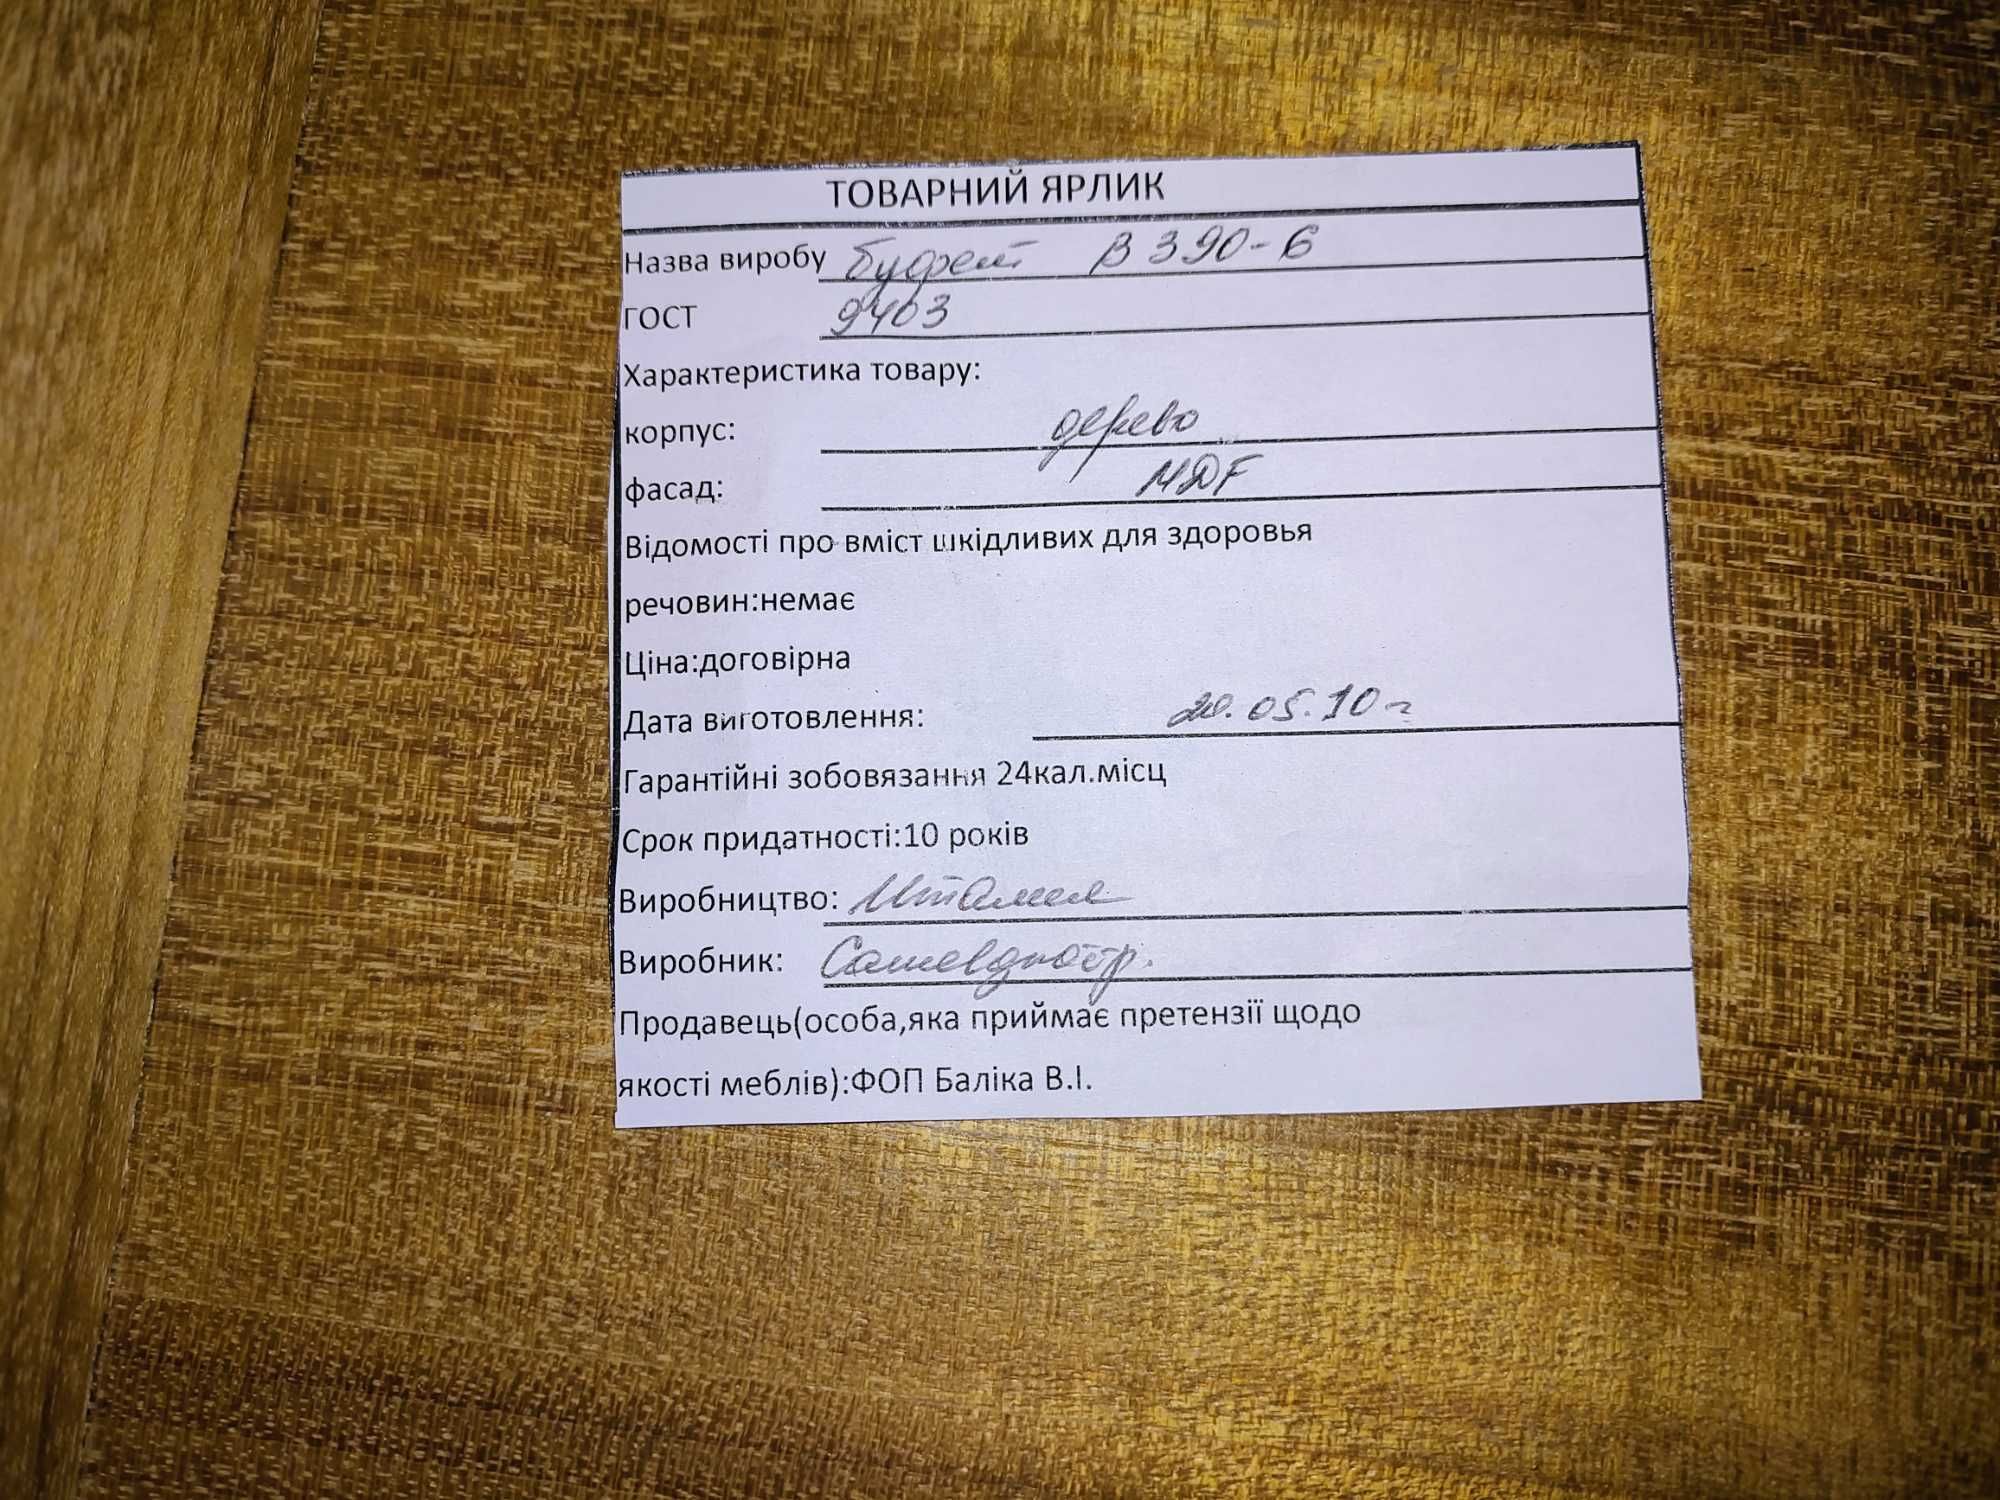 ТОВАРНИЙ ЯРЛИК
Назва виробу буфет В 390-6
ГОСТ 9403
Характеристика товару:
корпус: дерево
фасад: MDF
Відомості про вміст шкідливих для здоровья
речовин:немає
Ціна:договірна
Дата виготовлення: 20.05.10 г
Гарантійні зобовязання 24кал.місц
Срок придатності:10 років
Виробництво: Италия
Виробник:
Продавець(особа,яка приймає претензії щодо
якості меблів):ФОП Баліка В.І.